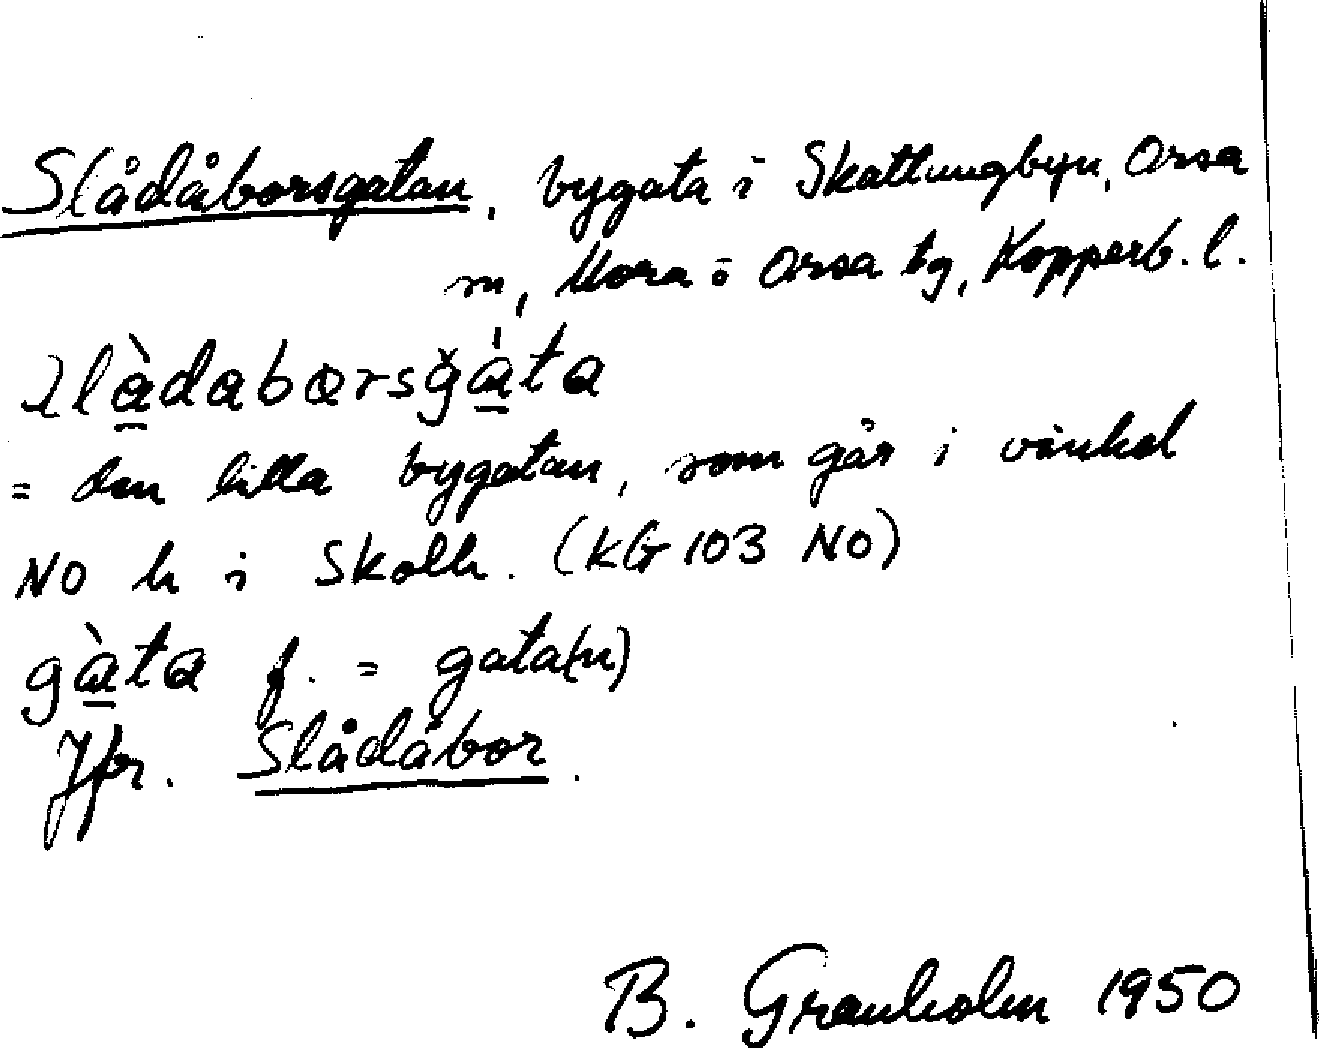 Slådåborsgatan, bygata i Skattungbyn, Orsa
m, Mora o Orsa tg, Kopperb. l.
= den lilla bygatan, som går i vinkel
NO h i Skolh. (KG 103 NO)
gàta f. = gata(n)
Jfr. Slådåbor.
B. Granholm 1950